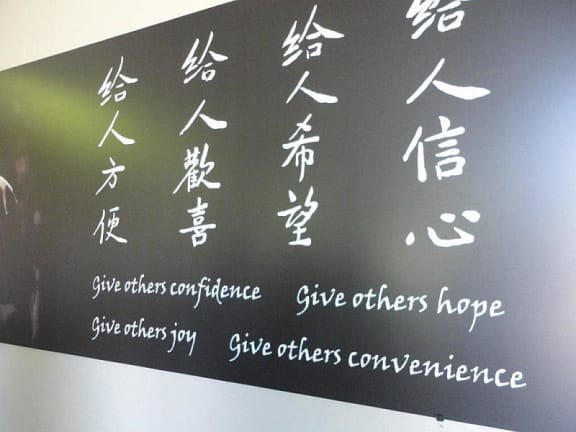 给人信心
给人希望
给人歡喜
给人方便
Give others confidence
Give others hope
Give others joy
Give others convenience